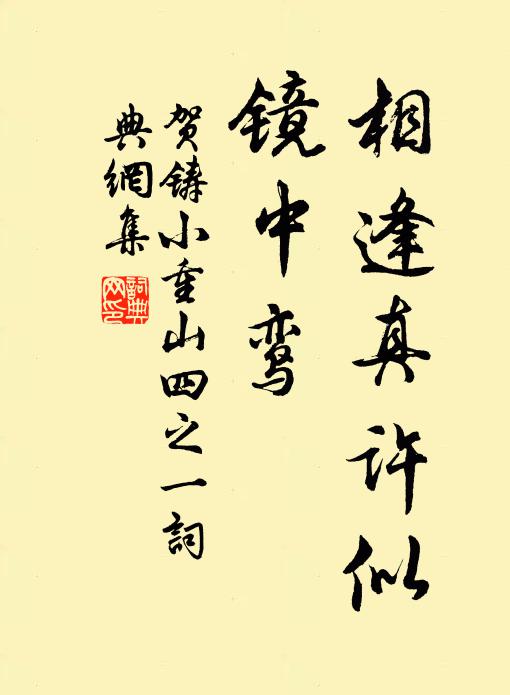 相逢真许似
镜中鸾
贺铸小重山四之一词
典網集
詞典
网印